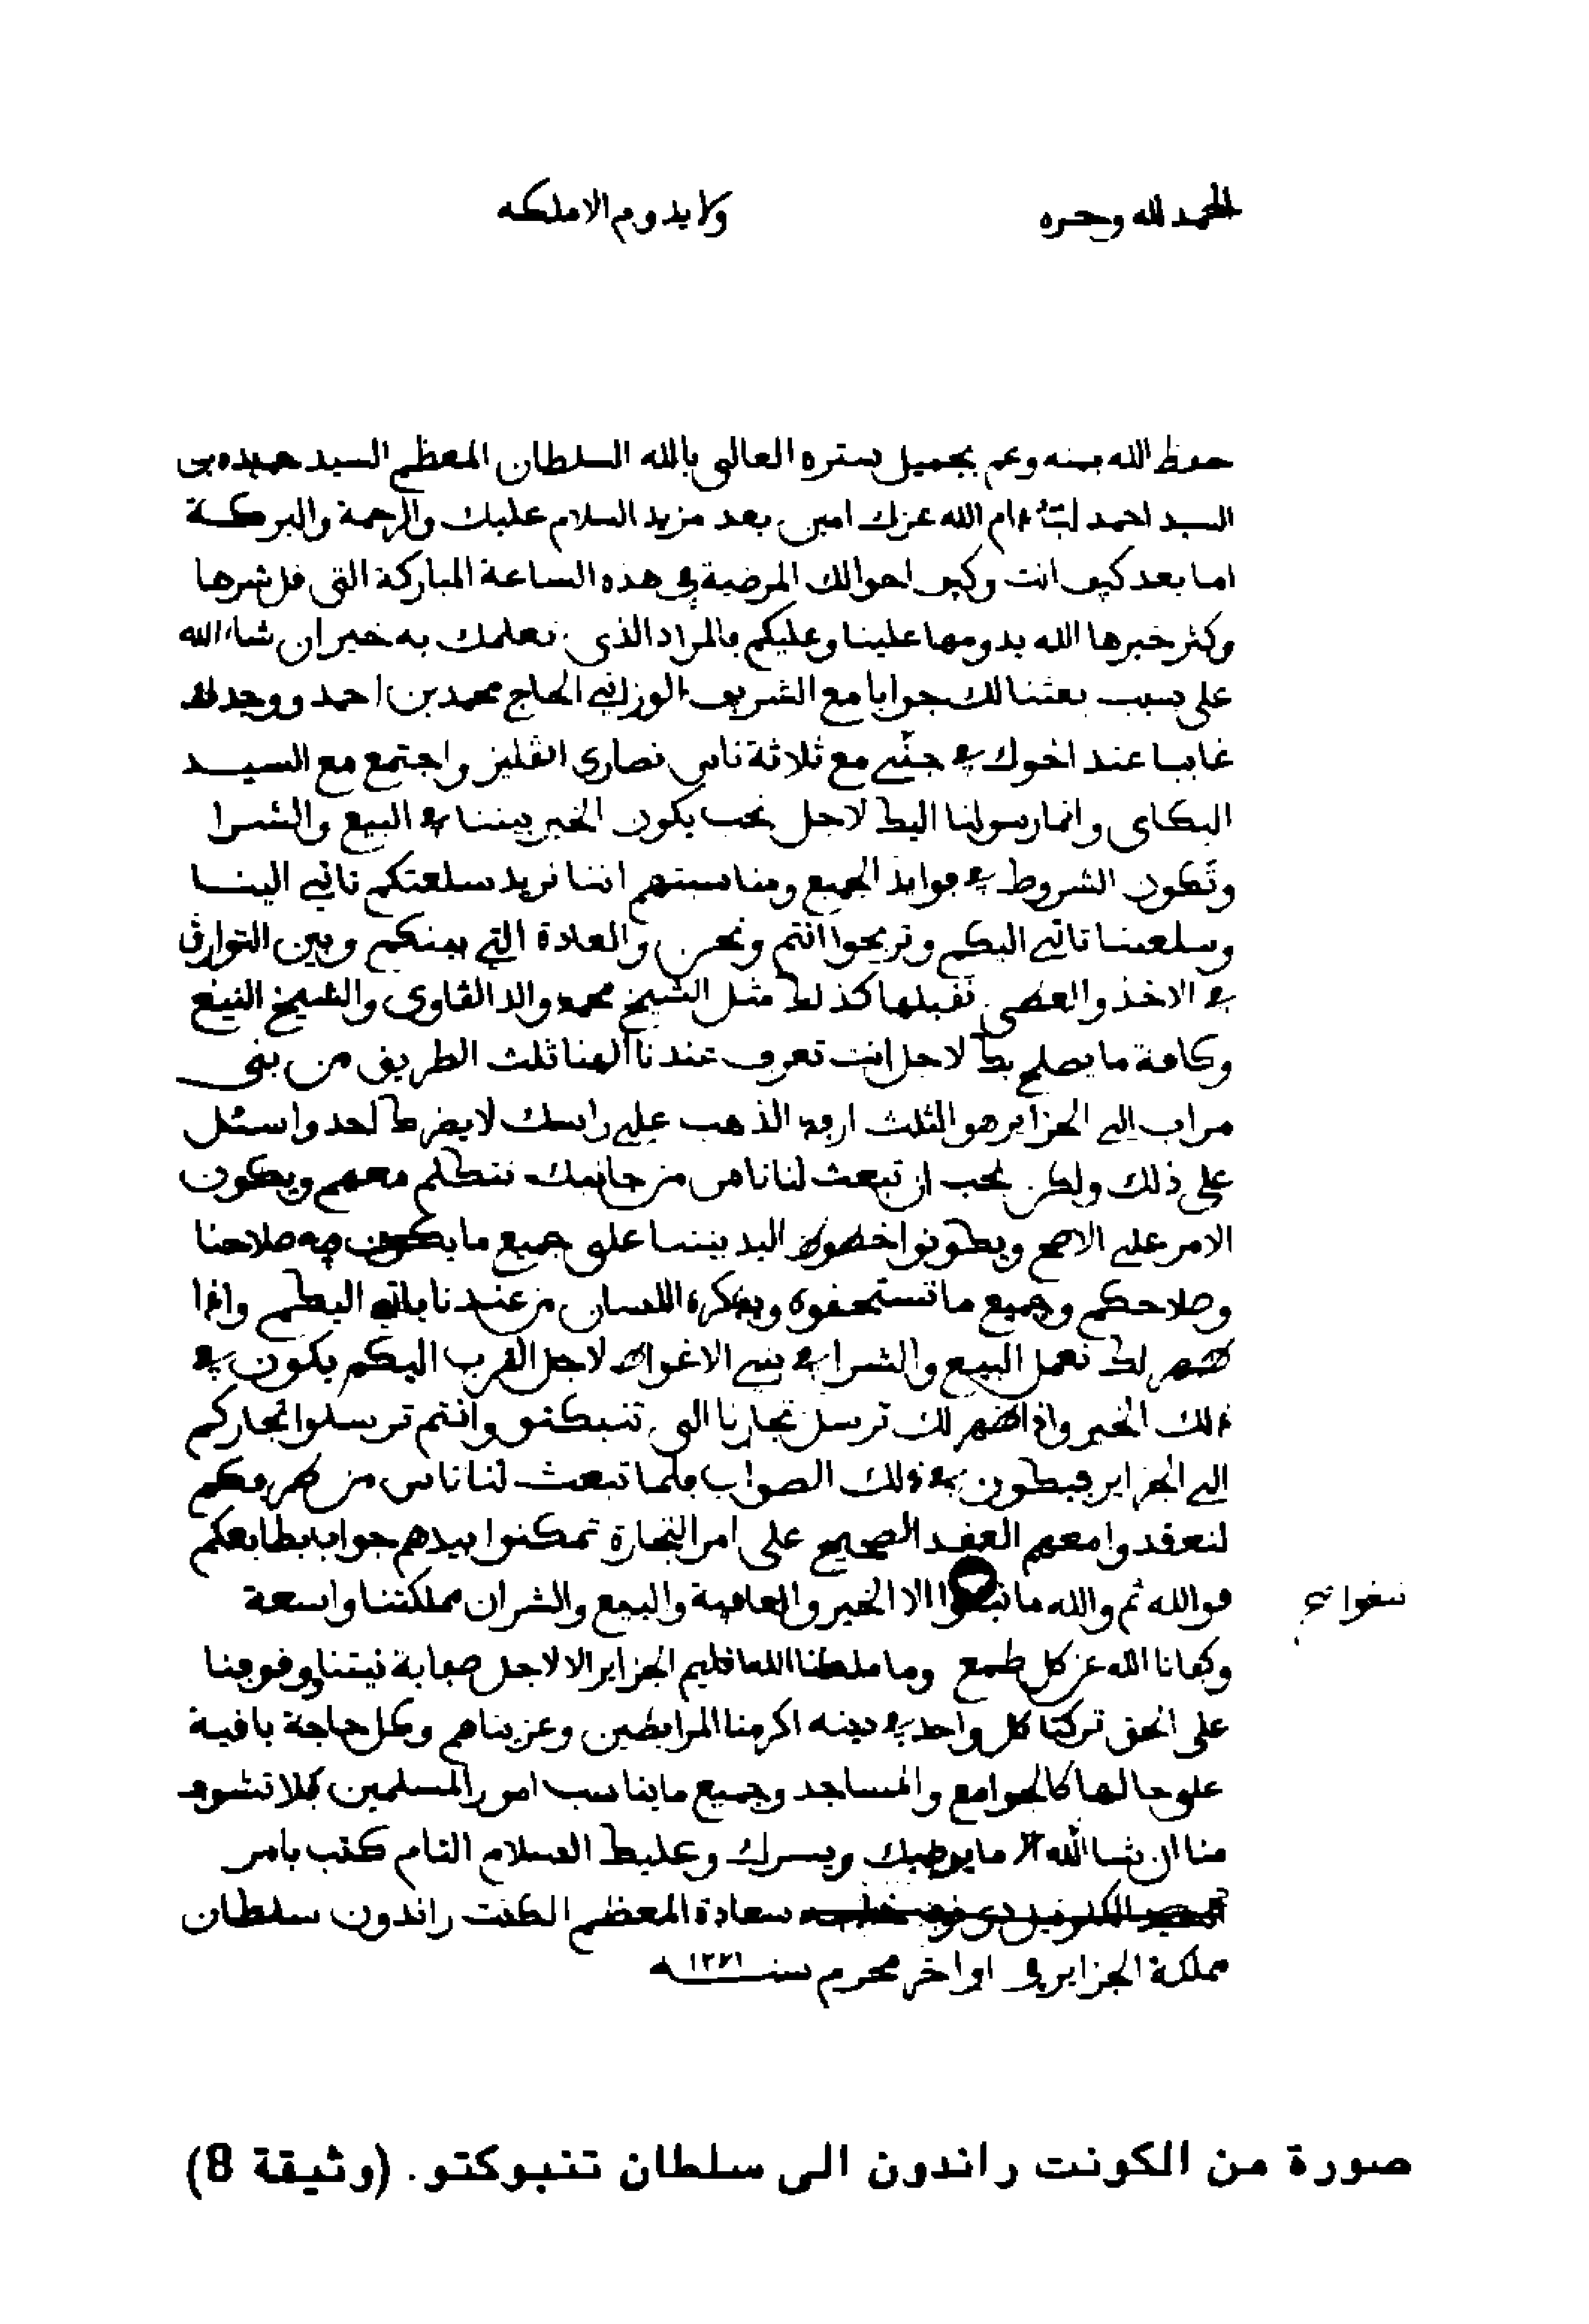 الحمد لله وحده
ولا يدوم الا ملكه
حفظ الله بمنه وعم بجميل ستره العالي بالله السلطان المعظم السيد
السيد احمد ادام الله عزك امين بعد مزيد السلام عليك والرحمة والبركة
اما بعد كيف انت وكيف احوالك المرضية في هذه الساعة المباركة التي قل شرها
وكثر خيرها الله يدومها علينا وعليكم فالمراد الذي نعلمك به خير ان شاء الله
على سبب بعثنا لك جوابا مع الشريف الوزاني الحاج محمد بن احمد ووجدك
غايبا عند اخوك في جنّي مع ثلاثة ناس نصارى انڨليز واجتمع مع السيد
البكاي وانما رسولنا اليك لاجل نحب يكون الخير بيننا في البيع والشرا
وتكون الشروط في فوايد الجميع ومناسبتهم اننا نريد سلعتكم تاتي الينا
وسلعتنا تاتي اليكم وتربحوا انتم ونحن والعادة التي بينكم وبين التوارڨ
في الاخذ والعطى نقبلها كذلك مثل الشيخ محمد والد الڨاوي والشيخ
وكافة ما يصلح بك لاجل انت تعرف عندنا الهنا ثلث الطريق من بني
مزاب الى الجزاير هو الثلث ارفد الذهب على راسك لا يضرك احد واسئل
على ذلك ولكن نحب ان تبعث لنا ناس من جانبك نتكلم معهم ويكون
الامر على الاصح ويكونوا اليد بيننا على جميع ما يكون فيه صلاحنا
وصلاحكم وجميع ما تستحفوه اللسان من عندنا ياتي اليكم واذا
ظهر لك نعمل البيع والشرا في بني الاغواط لاجل القرب اليكم يكون في
ذلك الخير واذا ظهر لك ترسل تجارنا الى تنبكتو وانتم ترسلوا تجاركم
الى الجزاير فيكون في ذلك الصواب فلما تبعث لنا ناس من طرفكم
لنعقدوا معهم العقد الصحيح على امر التجارة تمكنوا بيدهم جواب بطابعكم
فوالله ثم والله ما الا الخير والعافية والبيع والشرا ان مملكتنا واسعة
وكفانا الله عن كل طمع وما ملكنا الله اقليم الجزاير الا لاجل صفاية نيتنا ووقوفنا
على الحق تركنا كل واحد في دينه اكرمنا المرابطين وعزيناهم وكل حاجة باقية
على حالها كالجوامع والمساجد وجميع ما يناسب امور المسلمين فلا تشوف
منا ان شا الله الا ما يرضيك ويسرك وعليك السلام التام كتب بامر
سعادة المعظم الكنت راندون سلطان
مملكة الجزاير في اواخر محرم سنة
صورة من الكونت راندون الى سلطان تنبوكتو. (وثيقة 8)